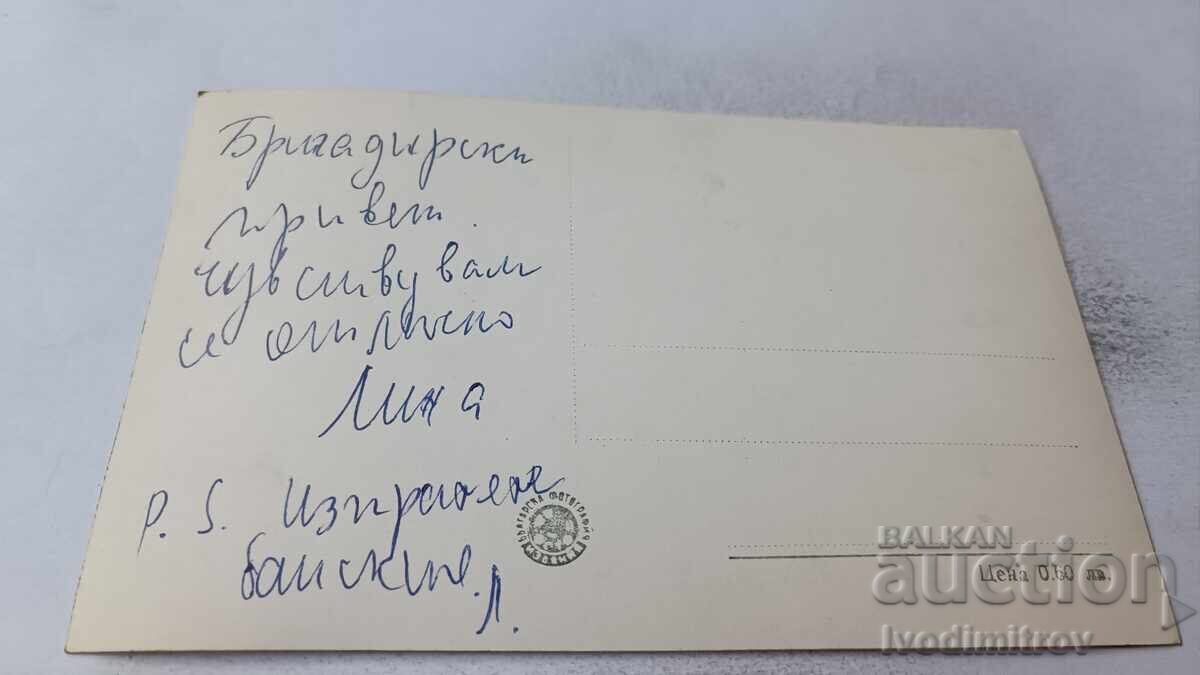 Бригадирски
привет.
чувствувам
се отлично
Лина
P. S. Изпратете
банските.
Л.
БЪЛГАРСКА ФОТОГРАФИЯ
Цена 0.60 лв.
BALKAN
auction
Ivodimitrov